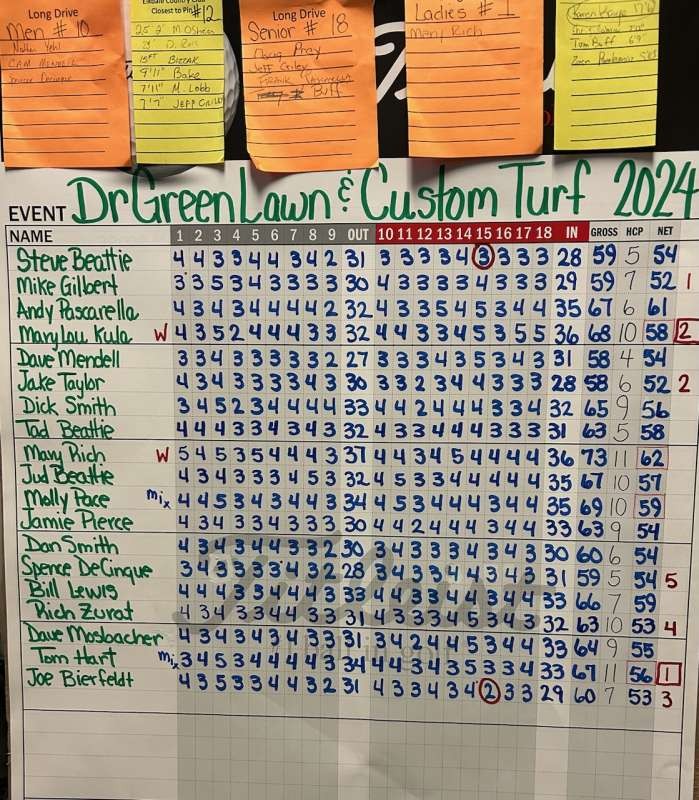 Long Drive
Men # 10
Elkdale Country Club
Closest to Pin #12
D. Ross
BIZZAK
9'11" Bake
7'11" M. Lobb
7'7" JEFF
Long Drive
Senior # 18
Doug Pray
JEFF
FRANK
Buff
Ladies # 1
Mary Rich
Tom Buff 6'9"
EVENT Dr Green Lawn & Custom Turf 2024
NAME 1 2 3 4 5 6 7 8 9 OUT 10 11 12 13 14 15 16 17 18 IN GROSS HCP NET
Steve Beattie 4 4 3 3 4 4 3 4 2 31 3 3 3 3 4 3 3 3 3 28 59 5 54
Mike Gilbert 3 3 5 3 4 3 3 3 3 30 4 3 3 3 3 4 3 3 3 29 59 7 52 1
Andy Pascarella 4 3 4 3 4 4 4 4 2 32 4 3 3 5 4 5 3 4 4 35 67 6 61
Mary Lou Kula W 4 3 5 2 4 4 4 3 3 32 4 4 3 3 4 5 3 5 5 36 68 10 58 2
Dave Mendell 3 3 4 3 3 3 3 3 2 27 3 3 3 4 3 5 3 4 3 31 58 4 54
Jake Taylor 4 3 4 3 3 3 3 4 3 30 3 3 2 3 4 4 3 3 3 28 58 6 52 2
Dick Smith 3 4 5 2 3 4 4 4 4 33 4 4 2 4 4 4 3 3 4 32 65 9 56
Tad Beattie 4 4 4 3 3 4 3 4 3 32 4 3 3 4 4 4 3 3 3 31 63 5 58
Mary Rich W 5 4 5 3 5 4 4 4 3 37 4 4 3 4 5 4 4 4 4 36 73 11 62
Jud Beattie 4 3 4 3 3 3 4 5 3 32 4 5 3 3 4 4 4 4 4 35 67 10 57
Molly Pace mix 4 4 5 3 4 3 4 4 3 34 4 5 3 4 4 4 3 4 4 35 69 10 59
Jamie Pierce 4 3 4 3 3 4 3 3 3 30 4 4 2 4 4 4 3 4 4 33 63 9 54
Dan Smith 4 3 4 3 4 4 3 3 2 30 3 4 3 3 3 4 3 4 3 30 60 6 54
Spence DeCinque 3 4 3 3 3 3 4 3 2 28 3 4 3 3 4 4 3 4 3 31 59 5 54 5
Bill Lewis 4 4 4 3 3 4 4 4 3 33 4 4 3 3 4 4 3 4 4 33 66 7 59
Rich Zurat 4 3 4 3 3 4 4 3 3 31 4 3 3 3 4 5 3 4 3 32 63 10 53 4
Dave Mosbacher 4 3 4 3 4 4 3 3 3 31 3 4 2 4 4 5 3 4 4 33 64 9 55
Tom Hart mix 3 4 5 3 4 4 4 4 3 34 4 4 3 4 3 5 3 3 4 33 67 11 56 1
Joe Bierfeldt 4 3 5 3 3 4 4 3 2 31 4 3 3 4 3 4 2 3 3 29 60 7 53 3